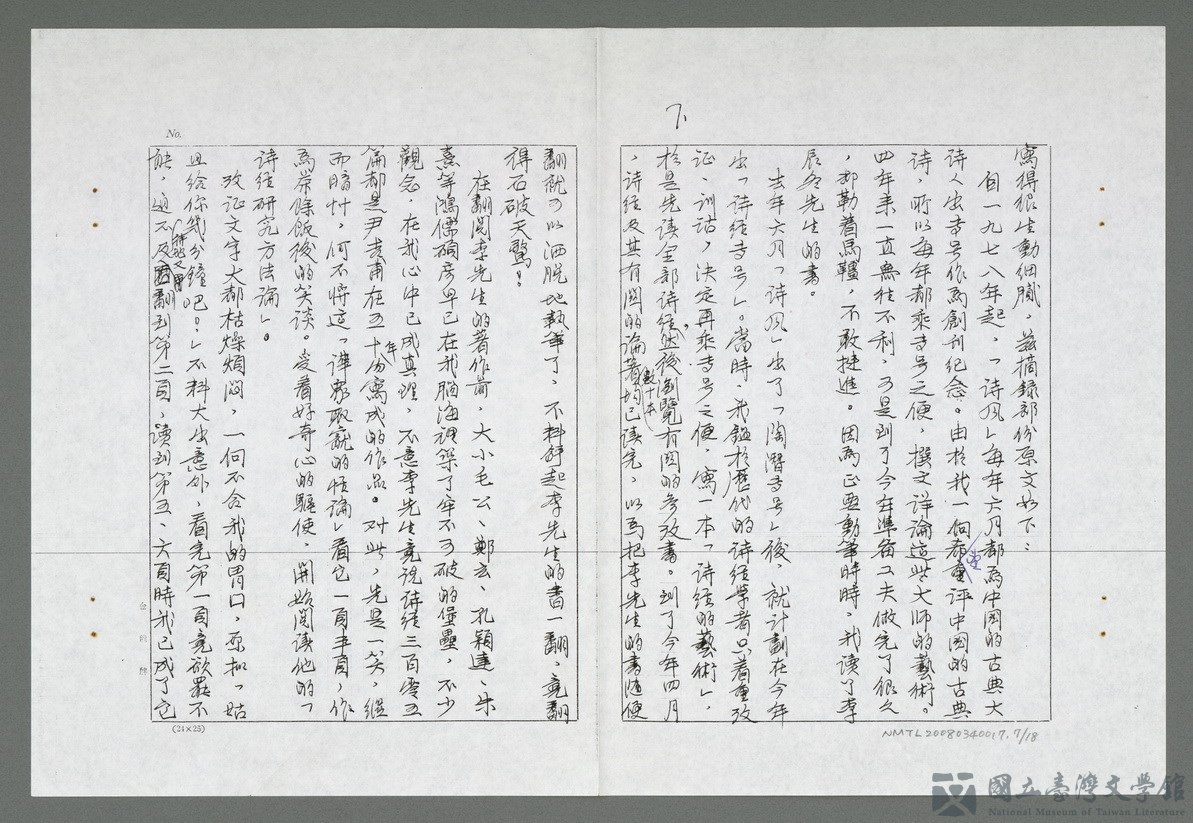 7.
寫得很生動細膩，茲摘錄部份原文如下：
自一九七八年起，「詩风」每年六月都為中国的古典大
诗人出专号作為創刊纪念。由於我一向希望重评中国的古典
诗，所以每年都乘专号之便，撰文详論這些大师的藝術。
四年来一直無往不利，可是到了今年準备工夫做完了很久
，却勒着馬韁，不敢挺進。因為正要動筆時，我读了李
辰冬先生的書。
去年六月「诗风」出了「陶潛专号」後，就计劃在今年
出「诗经专号」。當時，我鑑於歷代的诗经學者只着重攷
证、训詁，決定再乘专号之便，寫一本「诗经的藝術」，
於是先读全部诗经，然後瀏覽有関的参攷書。到了今年四月
，诗经及其有関的論著數十本均已读完，以為把李先生的書随便
翻就可以洒脱地執筆了，不料拜起李先生的書一翻，竟翻
得石破天驚！
在翻阅李先生的著作前，大小毛公、鄭玄、孔穎達、朱
熹等鴻儒碩彦早已在我腦海裡築了牢不可破的堡壘，不少
觀念，在我心中已成真理，不意李先生竟说诗经三百零五
篇都是尹吉甫在五十年份寫成的作品。对此，先是一笑，继
而暗忖，何不將這「譁眾取寵的怪論」看它一頁半頁，作
為茶餘飯後的笑谈。受着好奇心的驅使，開始阅读他的「
诗经研究方法論」。
攷证文字大都枯燥煩闷，一向不合我的胃口，原拟「姑
且给你幾分鐘吧！」不料大出意外，看完第一頁竟欲罷不
能，迫不及待翻到第二頁，读到第五、六頁時我已成了它
No.
(24×25)
NMTL20080340017.7/18
國立臺灣文學館
National Museum of Taiwan Literature